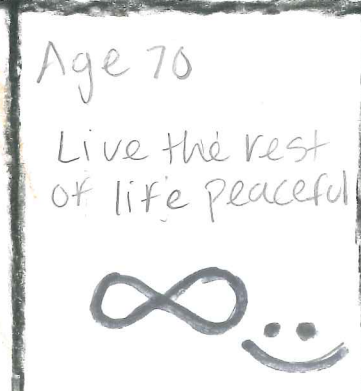 Age 70
Live the rest
of life peaceful